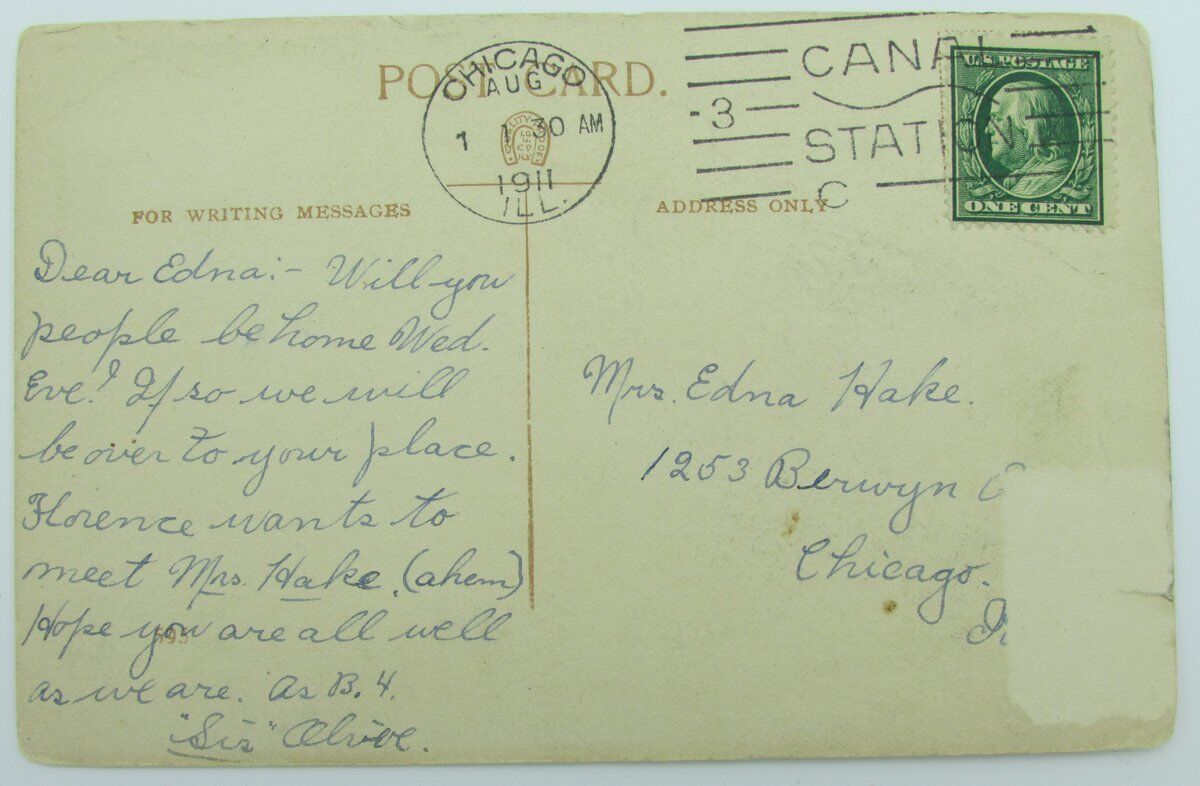 POST CARD.
CHICAGO
AUG
1 1 30 AM
1911
ILL.
3
CANAL
STATION
C
U.S. POSTAGE
ONE CENT
FOR WRITING MESSAGES
ADDRESS ONLY
Dear Edna:- Will you
people be home Wed.
Eve? If so we will
be over to your place.
Florence wants to
meet Mrs. Hake. (ahem)
Hope you are all well
as we are. As B. 4.
"Sis" Olive.
Mrs. Edna Hake.
1253 Berwyn
Chicago.